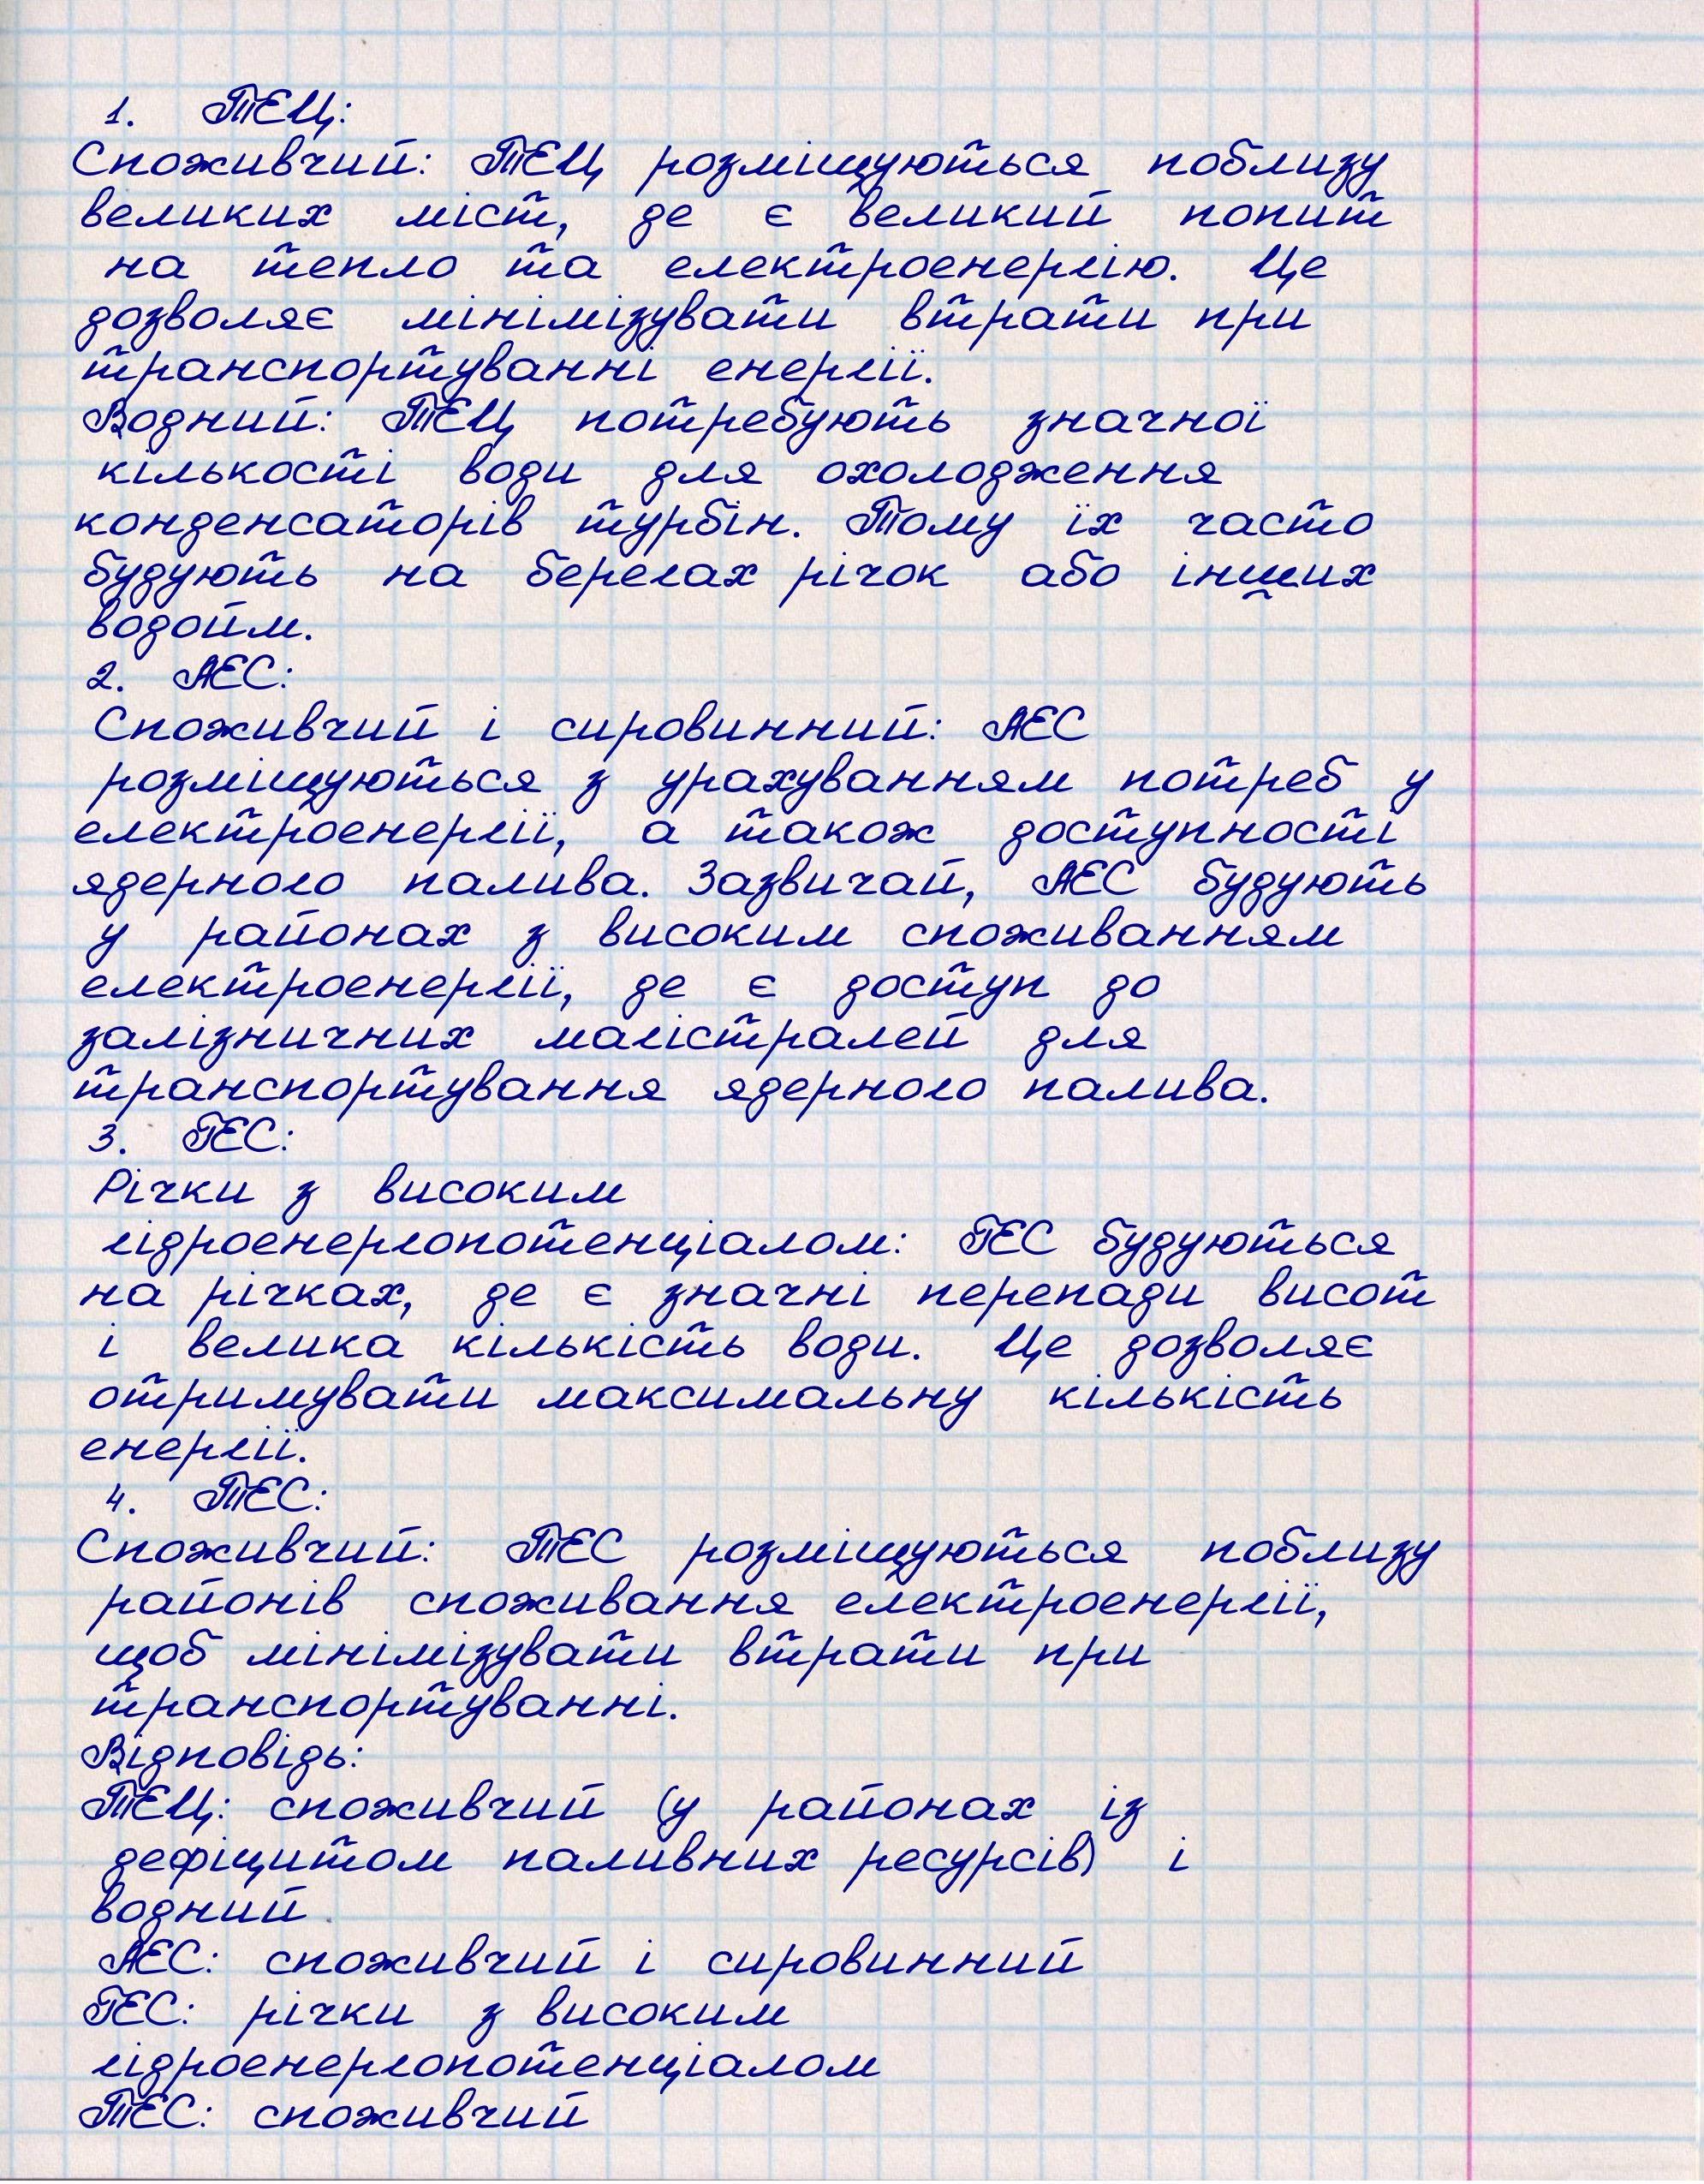 1. ТЕЦ:
Споживчий: ТЕЦ розміщуються поблизу
великих міст, де є великий попит
на тепло та електроенергію. Це
дозволяє мінімізувати втрати при
транспортуванні енергії.
Водний: ТЕЦ потребують значної
кількості води для охолодження
конденсаторів турбін. Тому їх часто
будують на берегах річок або інших
водойм.
2. АЕС:
Споживчий і сировинний: АЕС
розміщуються з урахуванням потреб у
електроенергії, а також доступності
ядерного палива. Зазвичай, АЕС будують
у районах з високим споживанням
електроенергії, де є доступ до
залізничних магістралей для
транспортування ядерного палива.
3. ГЕС:
Річки з високим
гідроенергопотенціалом: ГЕС будуються
на річках, де є значні перепади висот
і велика кількість води. Це дозволяє
отримувати максимальну кількість
енергії.
4. ТЕС:
Споживчий: ТЕС розміщуються поблизу
районів споживання електроенергії,
щоб мінімізувати втрати при
транспортуванні.
Відповідь:
ТЕЦ: споживчий (у районах із
дефіцитом паливних ресурсів) і
водний
АЕС: споживчий і сировинний
ГЕС: річки з високим
гідроенергопотенціалом
ТЕС: споживчий